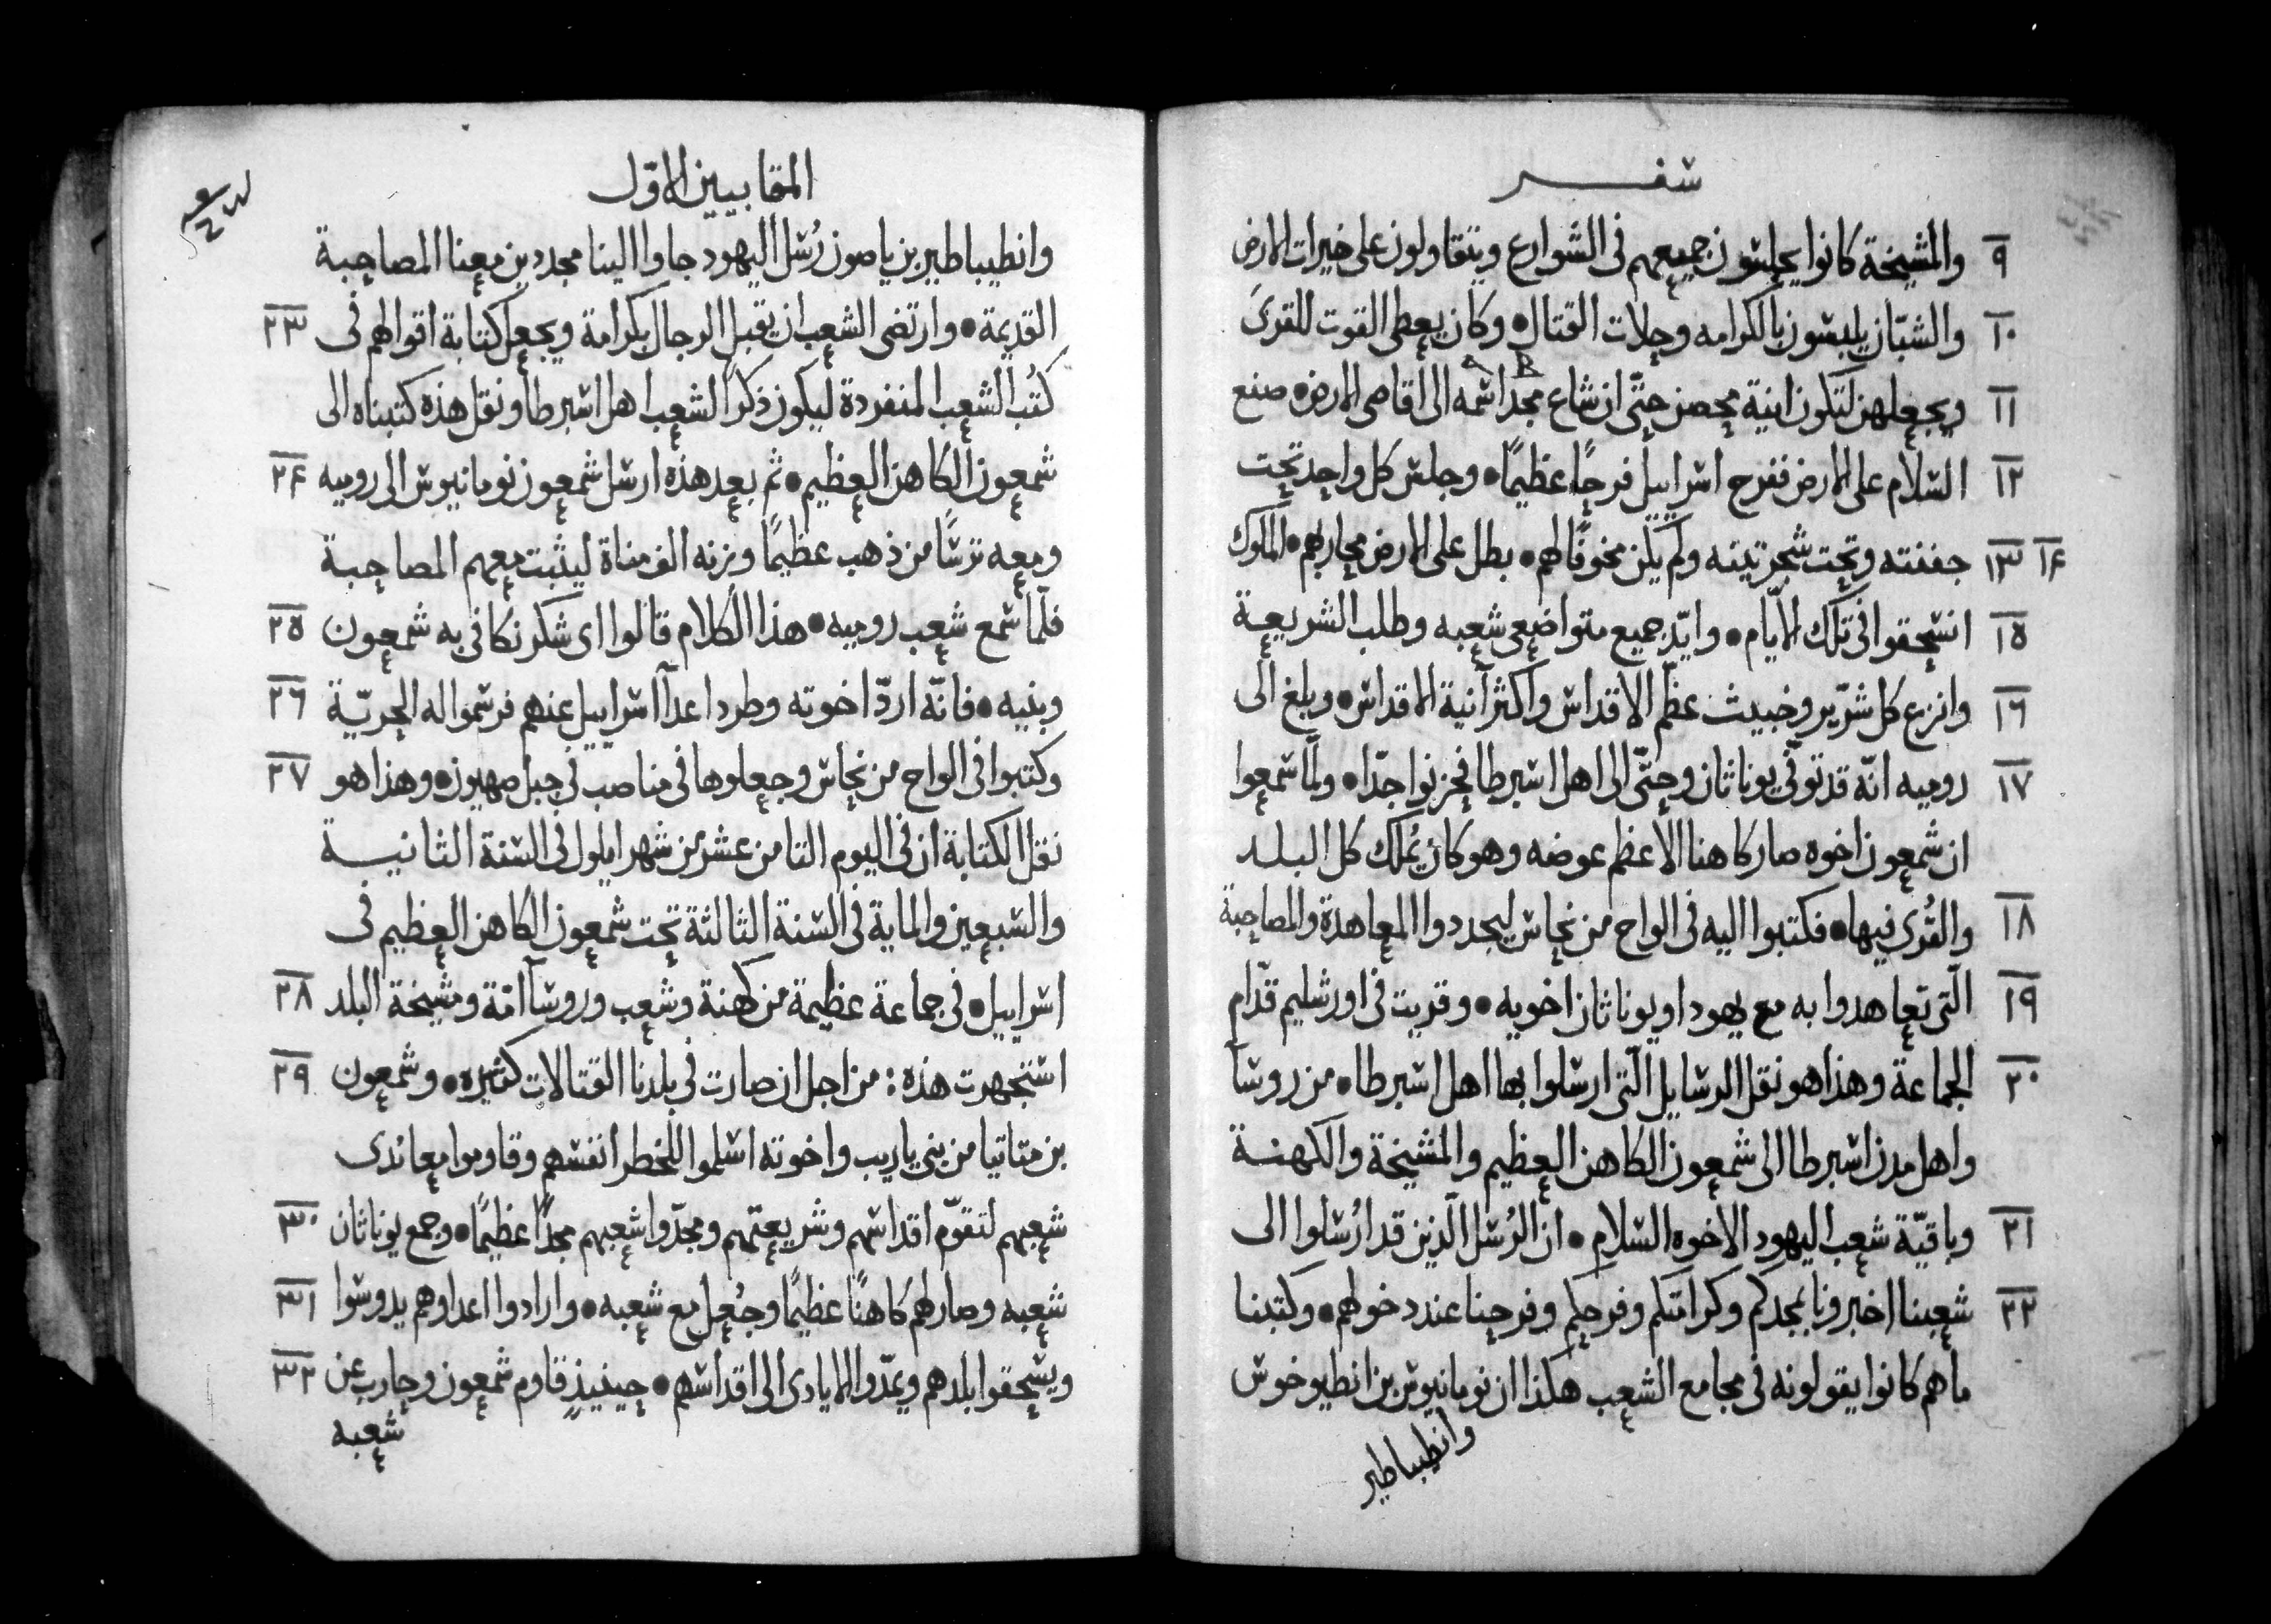 سفر
٩ والمشيخة كانوا يجلسون جميعهم في الشوارع ويتقاولون على خيرات الارض
١٠ والشبّان يلبسون بالكرامه وحلات القتال • وكان يعطى القوت للقرى
١١ ويجعلهن لتكون انية محصن حتّى ان شاع مجد اسمه الى اقاصى الارض • صنع
١٢ السّلام على الارض ففرح اسراييل فرحًا عظيمًا • وجلس كل واحد تحت
١٣ ١٤ جفنته وتحت شجر تينه ولم يكن مخوفًا لهم • بطل على الارض محاربهم • الملوك
١٥ انسحقوا في تلك الايّام • وايّد جميع متواضعى شعبه وطلب الشريعة
١٦ وانزع كل شرّير وخبيث عظّم الاقداس واكثر آنية الاقداس • وبلغ الى
١٧ روميه انّه قد توفّى يوناثان وحتّى الى اهل اسبرطا فحزنوا جدّا • ولمّا سمعوا
ان شمعون اخوه صار كاهنا الاعظم عوضه وهو كان يُملك كل البلد
١٨ والقُرى فيها • فكتبوا اليه في الواح من نحاس ليجددوا المعاهدة والمصاحبة
١٩ الّتى تعاهدوا به مع يهودا ويوناثان اخويه • وقريت في اورشليم قدّام
٢٠ الجماعة وهذا هو نقل الرسايل الّتى ارسلوا بها اهل اسبرطا • من روسآ
واهل مدن اسبرطا الى شمعون الكاهن العظيم والمشيخة والكهنة
٢١ وباقيّة شعب اليهود الاخوه السّلام • ان الرُسل الّذين قد ارُسلوا الى
٢٢ شعبنا اخبرونا بمجدكم وكرامتكم وفرحكم وفرحنا عند دخولهم • وكتبنا
ما هم كانوا يقولونه في مجامع الشعب هكذا ان نومانيوس بن انطيوخوس
وانطيباطير
المقابيين الاوّل
وانطيباطير بن ياصون رُسل اليهود جاوا الينا مجددين معنا المصاحبة
القديمة • وارتضى الشعب ان يقبل الرجال بكرامة ويجعل كتابة اقوالهم في ٢٣
كتُب الشعب المنفردة ليكون ذكرًا لشعب اهل اسبرطا ونقل هذه كتبناه الى
شمعون الكاهن العظيم • ثم بعد هذه ارسل شمعون نومانيوس الى روميه ٢٤
ومعه ترسًا من ذهب عظيمًا وزنه الف مناة ليثبت معهم المصاحبة
فلمّا سمع شعب روميه • هذا الكلام قالوا اى شكر نكافى به شمعون ٢٥
وبنيه • فانّه اردّ اخوته وطرد اعدآ اسراييل عنهم فرسموا له الحريّة ٢٦
وكتبوا في الواح من نحاس وجعلوها في مناصب في جبل صهيون • وهذا هو ٢٧
نقل الكتابة ان في اليوم الثامن عشر من شهر ايلول في السّنة الثانية
والسّبعين والماية في السّنة الثالثة تحت شمعون الكاهن العظيم في
اسراييل • في جماعة عظيمة من كهنة وشعب وروسآ امّة ومشيخة البلد ٢٨
استجهرت هذه : من اجل ان صارت في بلدنا القتالات كثيره • وشمعون ٢٩
بن متاتيا من بنى ياريب واخوته اسلموا للخطر انفسهم وقاوموا معاندى
شعبهم لتقوّم اقداسهم وشريعتهم ومجدّوا شعبهم مجدًا عظيمًا • وجمع يوناثان ٣٠
شعبه وصار لهم كاهنًا عظيمًا وجُعل مع شعبه • وارادوا اعداوهم يدوسوا ٣١
ويسحقوا بلدهم ويمدّوا الايادى الى اقداسهم • حينيذٍ قاوم شمعون وحارب عن ٣٢
شعبه